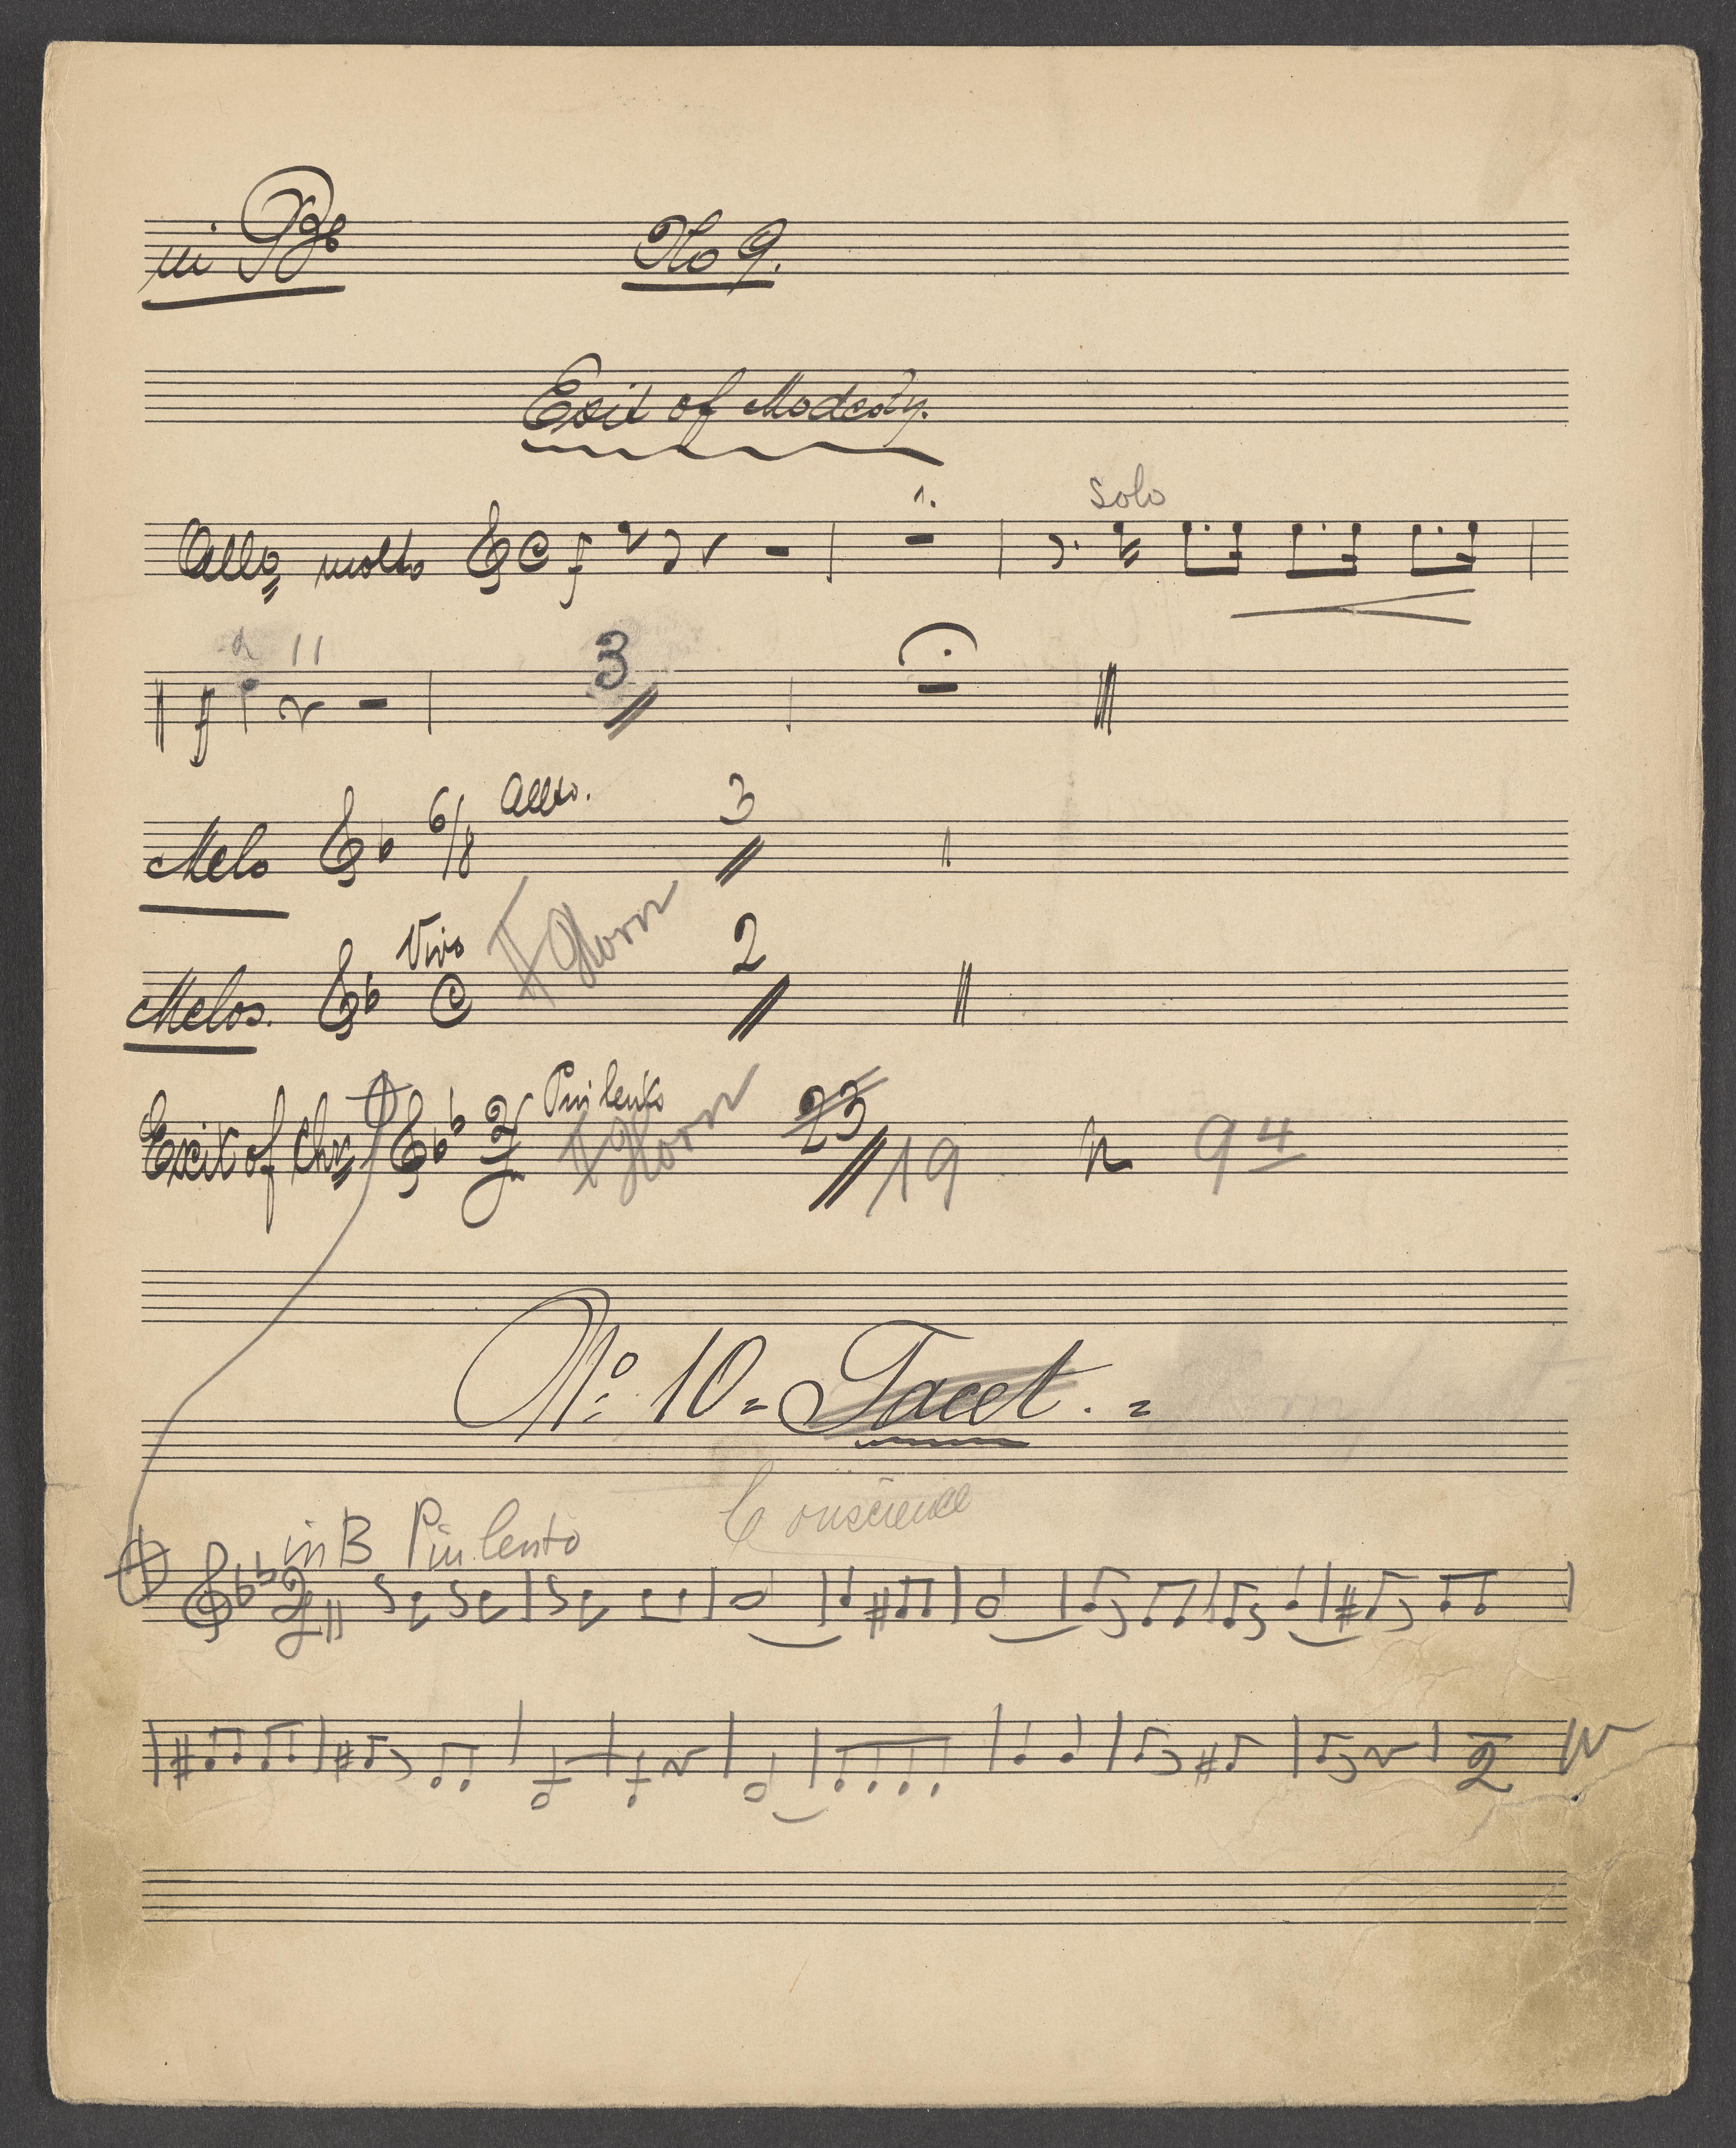 in Bb No 9.
Exit of Modesty.
Allo molto f solo
ff 3
Melo 6/8 Allto. 3
Melos. Vivo 2
Exit of Chr. 2/4 Piu lento 23 19 94
No. 10 = Tacet. =
Conscience
in B Piu lento
2/4
2